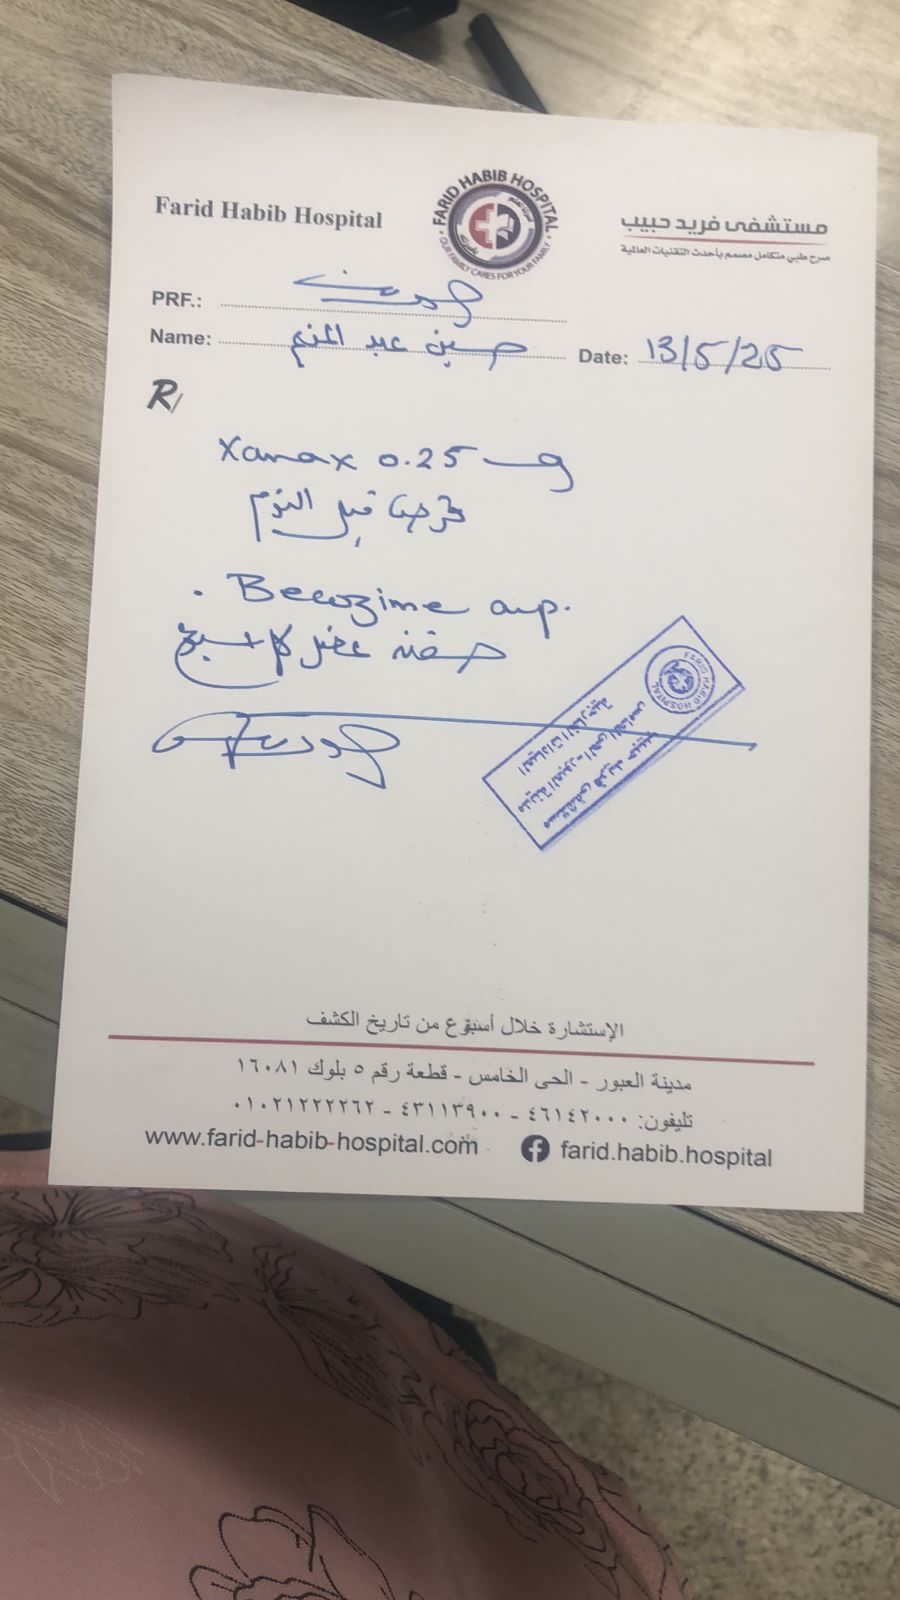 Farid Habib Hospital
FARID HABIB HOSPITAL
OUR FAMILY CARES FOR YOUR FAMILY
مستشفى فريد حبيب
صرح طبي متكامل مصمم بأحدث التقنيات العالمية
PRF.:
Name: حسين عبد المنعم
Date: 13/5/25
R/
Xanax 0.25
قبل النوم
. Becozime amp.
حقنة عضل كل أسبوع
FARID HABIB HOSPITAL
مستشفى فريد حبيب
مدينة العبور - الحى الخامس
العيادات الخارجية
الإستشارة خلال أسبوع من تاريخ الكشف
مدينة العبور - الحى الخامس - قطعة رقم ٥ بلوك ١٦٠٨١
تليفون: ٤٦١٤٢٠٠٠ - ٤٣١١٣٩٠٠ - ٠١٠٢١٢٢٢٢٦٢
www.farid-habib-hospital.com
farid.habib.hospital